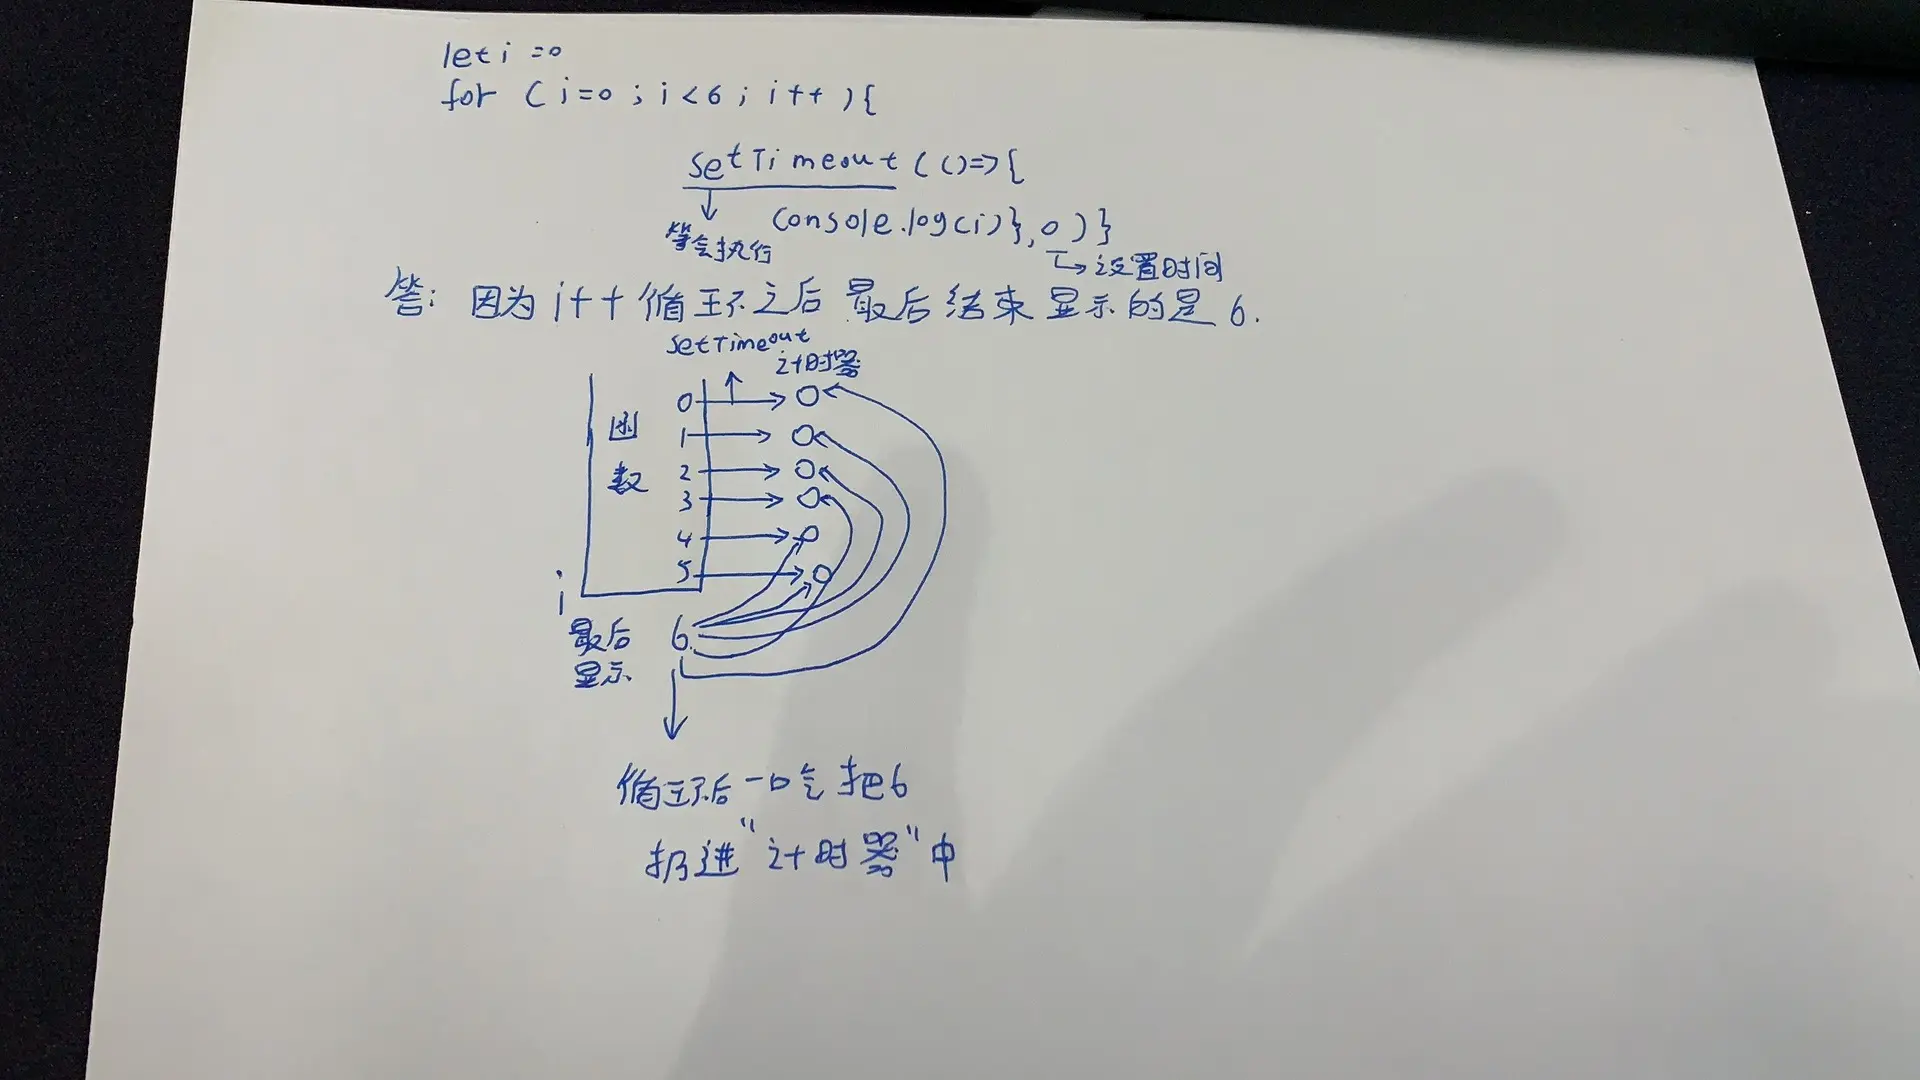 let i =0
for (i=0 ; i<6 ; i++ ){
setTimeout (()=>{
console.log(i)},0 )}
等会执行
设置时间
答: 因为 i++ 循环之后 最后结束 显示的是 6.
setTimeout
计时器
0
函 1
数 2
3
4
5
i
最后 6
显示
循环后一口气把6
扔进"计时器"中